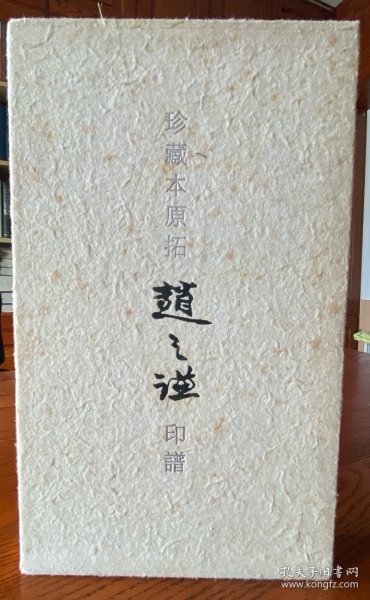 珍藏本原拓 趙之謙 印譜
孔夫子旧书网
www.kongfz.com